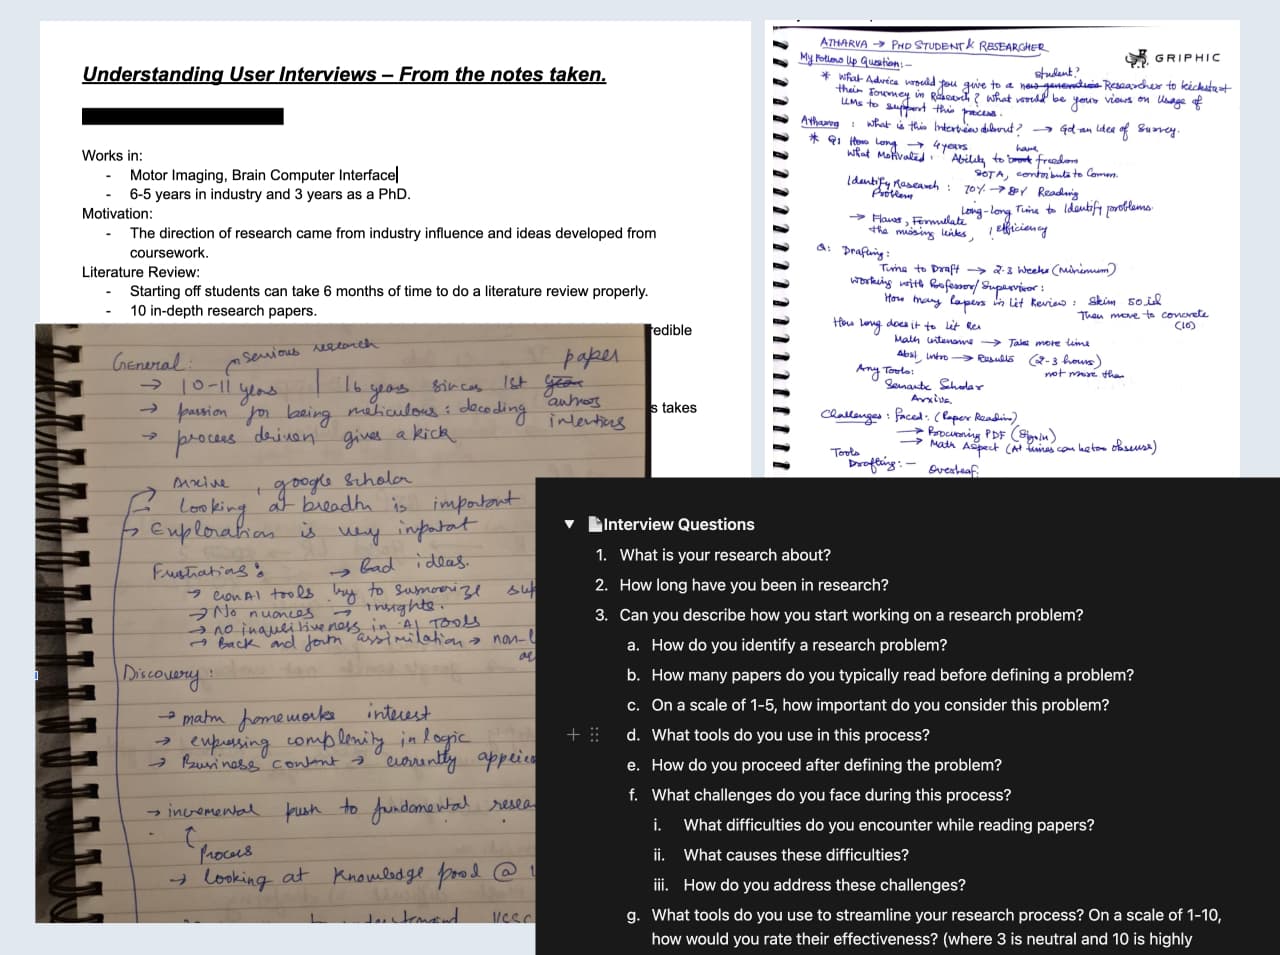 Understanding User Interviews – From the notes taken.
Works in:
- Motor Imaging, Brain Computer Interface
- 6-5 years in industry and 3 years as a PhD.
Motivation:
- The direction of research came from industry influence and ideas developed from
coursework.
Literature Review:
- Starting off students can take 6 months of time to do a literature review properly.
- 10 in-depth research papers.
redible
s takes
ATHARVA → PHD STUDENT & RESEARCHER
GRIPHIC
My Follow Up Question:-
student?
* What Advice would you give to a new generation Researcher to kickstart
their Journey in Research? What would be your views on Usage of
LLMs to support this process.
Atharva : What is this Interview about? → Got an Idea of Survey.
* Q1 How Long → 4 years
have
What Motivated : Ability to freedom
SOTA, contribute to Comm.
Identify Research : 70% → Reading
Problem
Long-Long Time to Identify problems
→ Flaws, Formulate
the missing links, efficiency
Q: Drafting:
Time to Draft → 2-3 Weeks (Minimum)
Working with Professor/Supervisor:
How many Papers in Lit Review : Skim 50
Then move to concrete
(10)
How long does it to Lit Rev
Math intensive → Take more time
Abs, Intro → Results (2-3 hours)
not more than
Any Tools:
Semantic Scholar
Arxive
Challenges : faced: (Paper Reading)
→ Procurring PDF (Signin)
→ Math Aspect (At times can be too obscuse)
Tools
Drafting:- Overleaf
General: serious research
→ 10-11 years | 16 years since 1st paper
→ passion for being meticulous: decoding authors
intentions
→ process driven gives a kick
Arxive, google scholar
Looking at breadth is important
→ Exploration is very
Frustrations: → Bad ideas.
→ GenAI tools to
→ No nuances → insights.
→ no inquisitiveness in AI TOOLS
→ Back and forth assimilation → non-
Discovery:
→ interest
→ expressing complexity in logic
→ Business context → currently
→ incremental push to fundamental resea
Process
→ looking at knowledge pool @
Interview Questions
1. What is your research about?
2. How long have you been in research?
3. Can you describe how you start working on a research problem?
a. How do you identify a research problem?
b. How many papers do you typically read before defining a problem?
c. On a scale of 1-5, how important do you consider this problem?
d. What tools do you use in this process?
e. How do you proceed after defining the problem?
f. What challenges do you face during this process?
i. What difficulties do you encounter while reading papers?
ii. What causes these difficulties?
iii. How do you address these challenges?
g. What tools do you use to streamline your research process? On a scale of 1-10,
how would you rate their effectiveness? (where 3 is neutral and 10 is highly